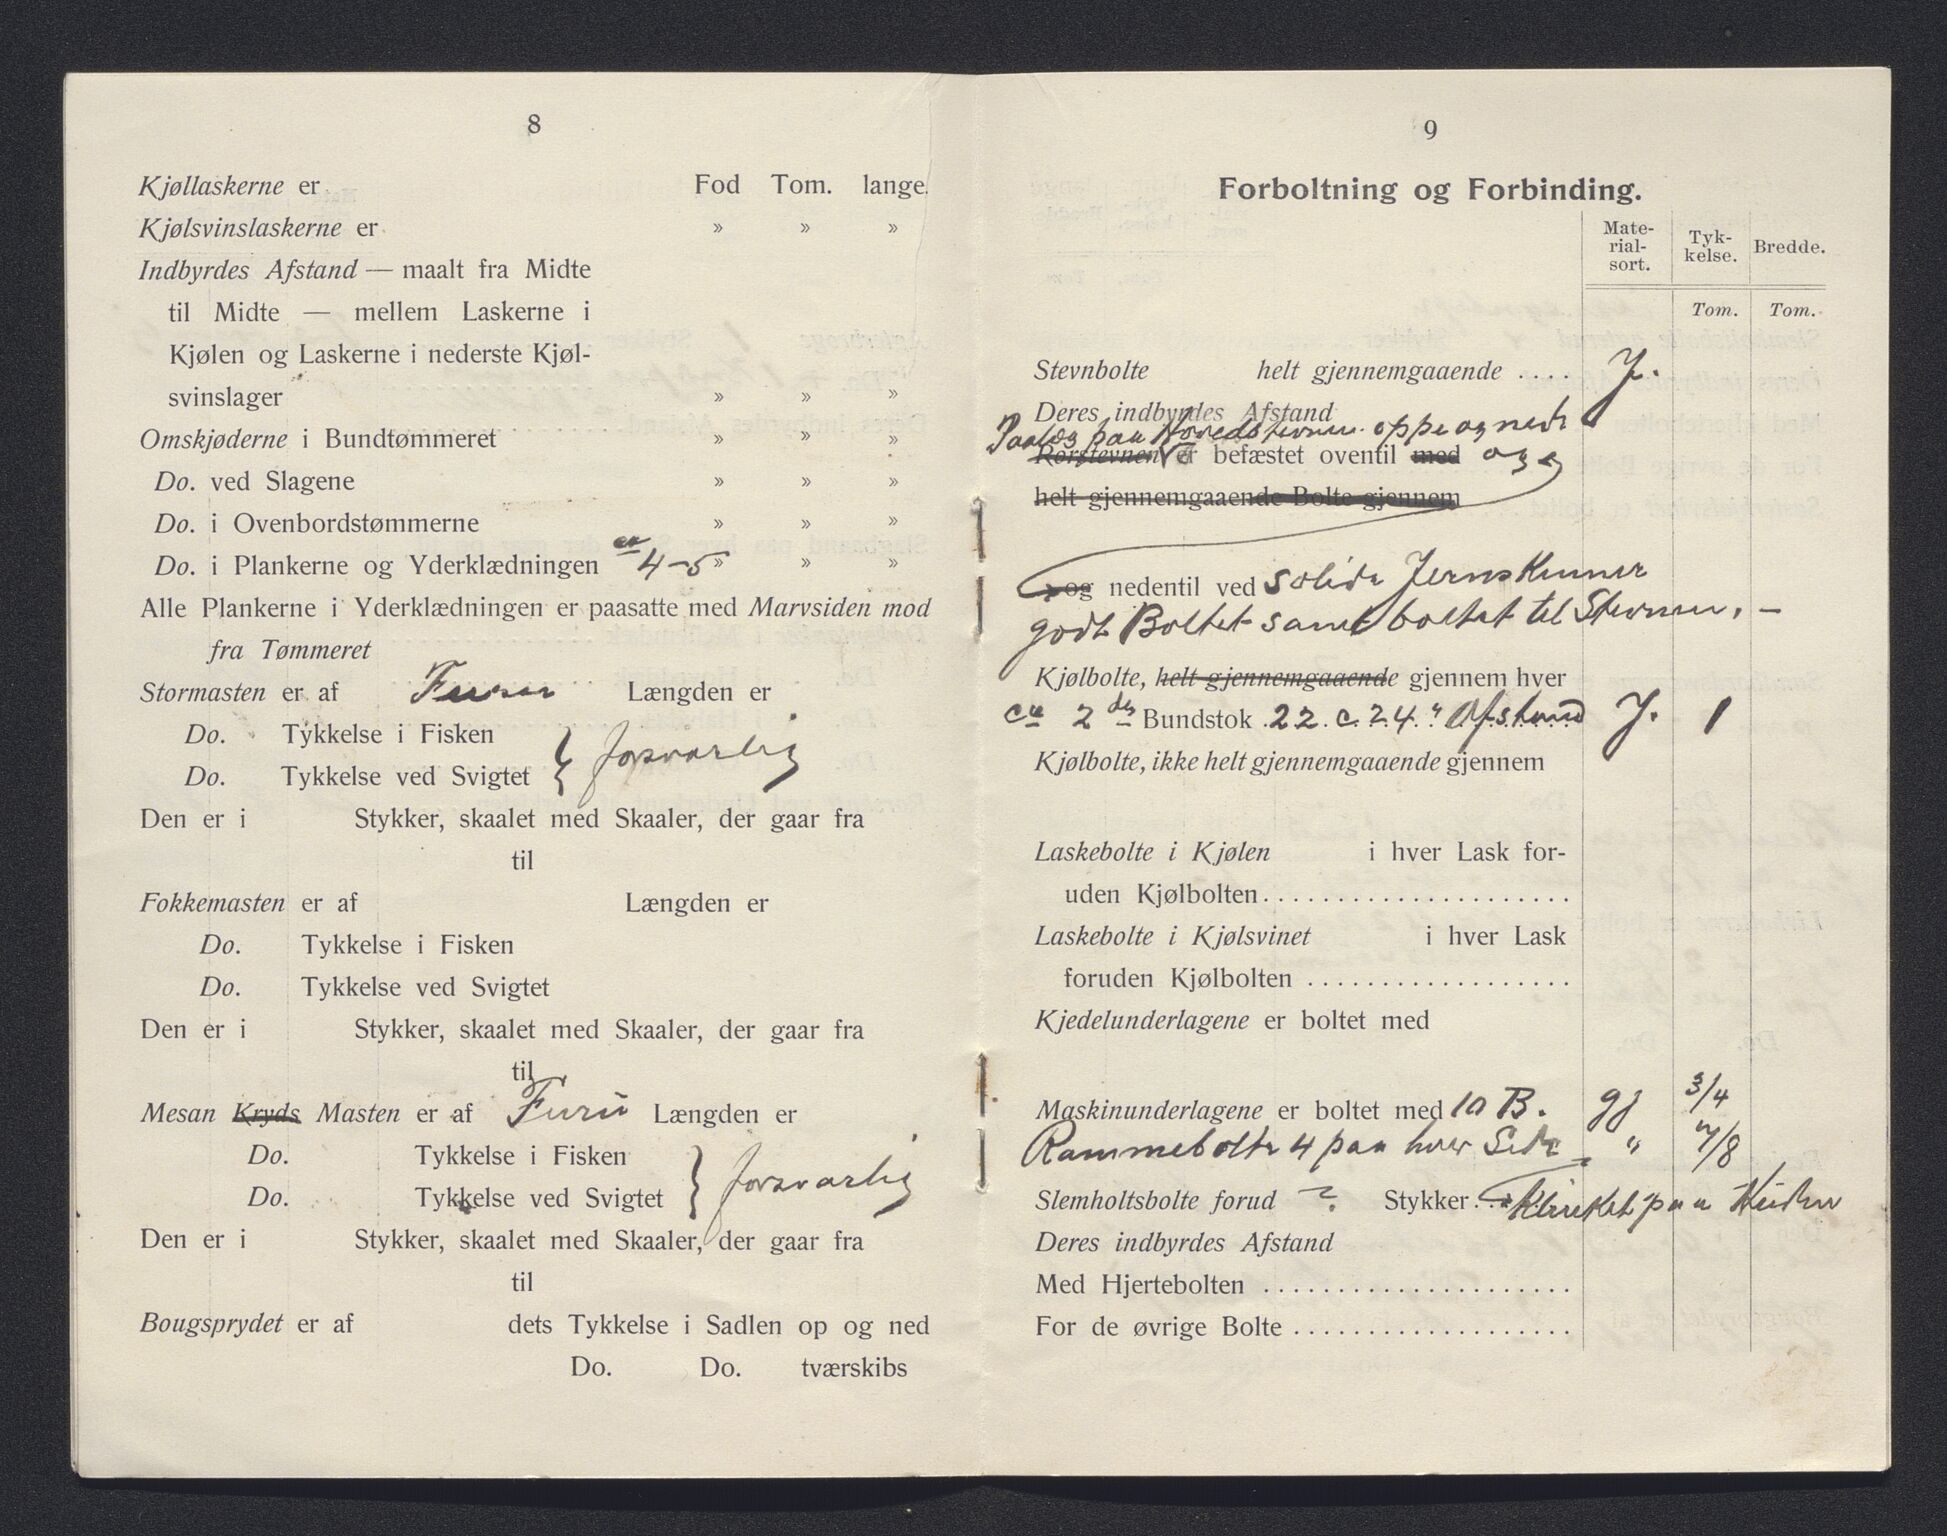 8
Kjøllaskerne er Fod Tom. lange.
Kjølsvinslaskerne er » » »
Indbyrdes Afstand — maalt fra Midte
til Midte — mellem Laskerne i
Kjølen og Laskerne i nederste Kjøl-
svinslager » » »
Omskjøderne i Bundtømmeret » » »
Do. ved Slagene » » »
Do. i Ovenbordstømmerne » » »
Do. i Plankerne og Yderklædningen ca 4-5 » » »
Alle Plankerne i Yderklædningen er paasatte med Marvsiden mod
fra Tømmeret
Stormasten er af Længden er
Do. Tykkelse i Fisken
Do. Tykkelse ved Svigtet } forsvarlig
Den er i Stykker, skaalet med Skaaler, der gaar fra
til
Fokkemasten er af Længden er
Do. Tykkelse i Fisken
Do. Tykkelse ved Svigtet
Den er i Stykker, skaalet med Skaaler, der gaar fra
til
Mesan Kryds Masten er af Furu Længden er
Do. Tykkelse i Fisken
Do. Tykkelse ved Svigtet } forsvarlig
Den er i Stykker, skaalet med Skaaler, der gaar fra
til
Bougsprydet er af dets Tykkelse i Sadlen op og ned
Do. Do. tværskibs
9
Forboltning og Forbinding.
Mate-
rial-
sort.
Tyk-
kelse.
Bredde.
Tom. Tom.
Stevnbolte helt gjennemgaaende .... J.
Deres indbyrdes Afstand
Paalæg paa Hovedstevnen oppe og nede
Rorstevnen er befæstet oventil med og
helt gjennemgaaende Bolte gjennem
og nedentil ved solide Jernskinner
godt Boltet samt boltet til Stevnen. —
Kjølbolte, helt gjennemgaaende gjennem hver
ca 2 den Bundstok 22. c. 24." Afstand J. 1
Kjølbolte, ikke helt gjennemgaaende gjennem
Laskebolte i Kjølen i hver Lask for-
uden Kjølbolten......................
Laskebolte i Kjølsvinet i hver Lask
foruden Kjølbolten ...................
Kjedelunderlagene er boltet med
Maskinunderlagene er boltet med 10 B. gj 3/4
Rammebolte 4 paa hver Side " 7/8
Slemholtsbolte forud ? Stykker... Klinket paa
Deres indbyrdes Afstand
Med Hjertebolten ......................
For de øvrige Bolte ....................